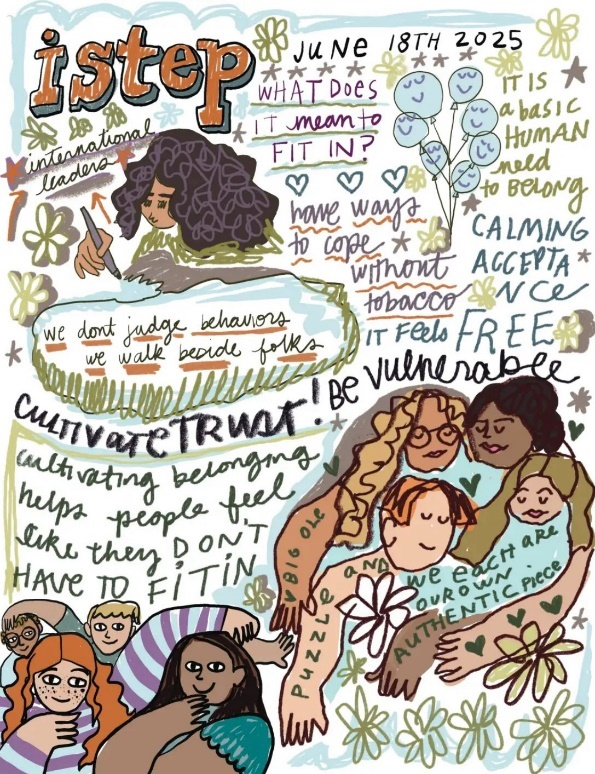 istep
JUNE 18TH 2025
international
leaders
WHAT DOES
IT mean to
FIT IN?
IT IS
a basic
HUMAN
need
to BELONG
have ways
to cope
without
tobacco
CALMING
ACCEPTA
NCe
IT Feels FREE
we dont judge behaviors
we walk beside folks
cultivate TRUST!
Be vulnerable
cultivating belonging
helps people feel
like they DON'T
HAVE TO FIT IN
BIG OLE
PUZZLE AND
we each are
OUR OWN
AUTHENTIC piece